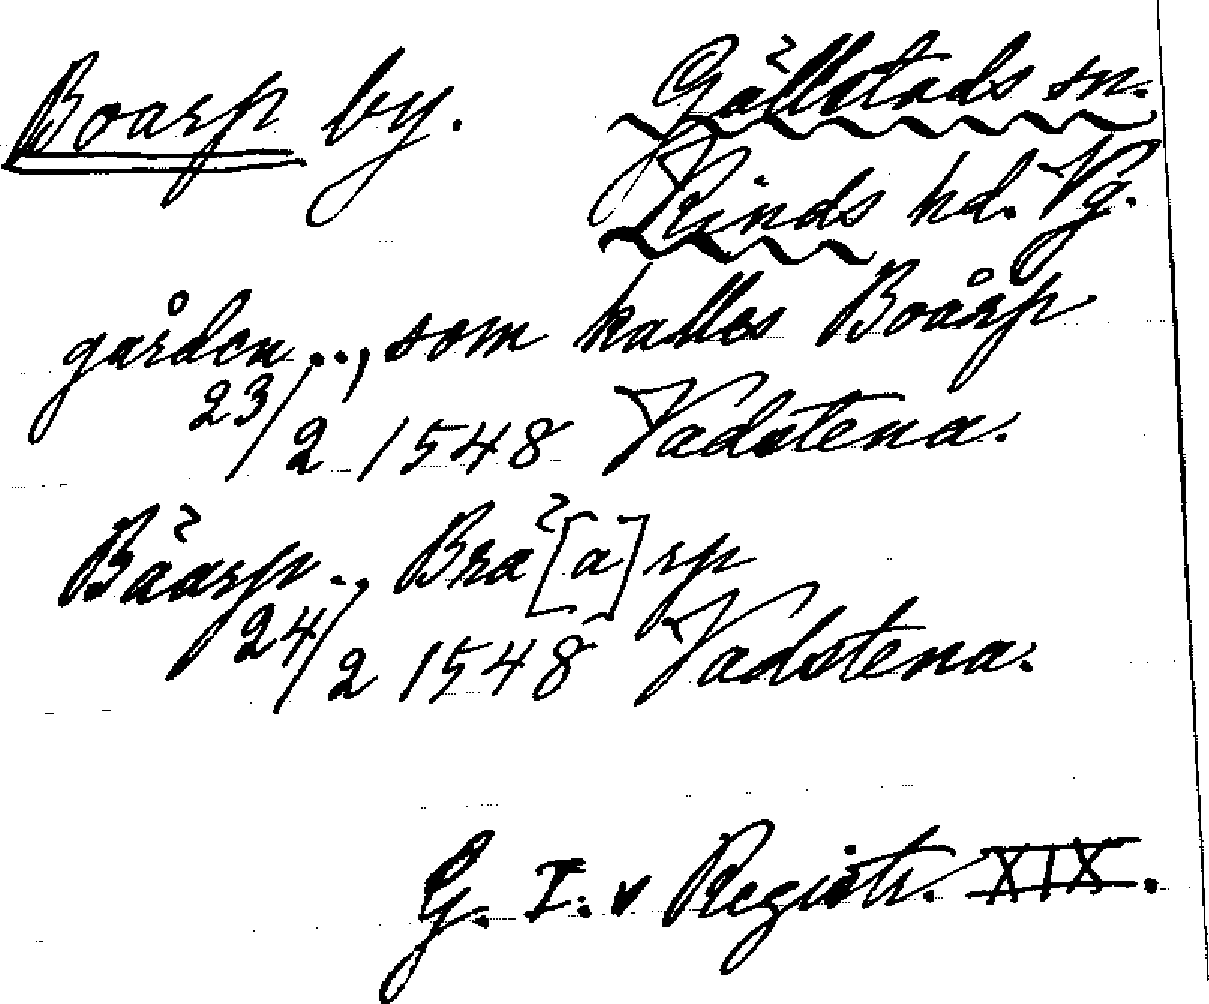 Boarp by.
Gällstads sn.
Kinds hd. Vg.
gården .., som kalles Boårp
23/2 1548 Vadstena.
Båarp.., Brå[a]rp
24/2 1548 Vadstena.
G. I. v Registr. XIX.